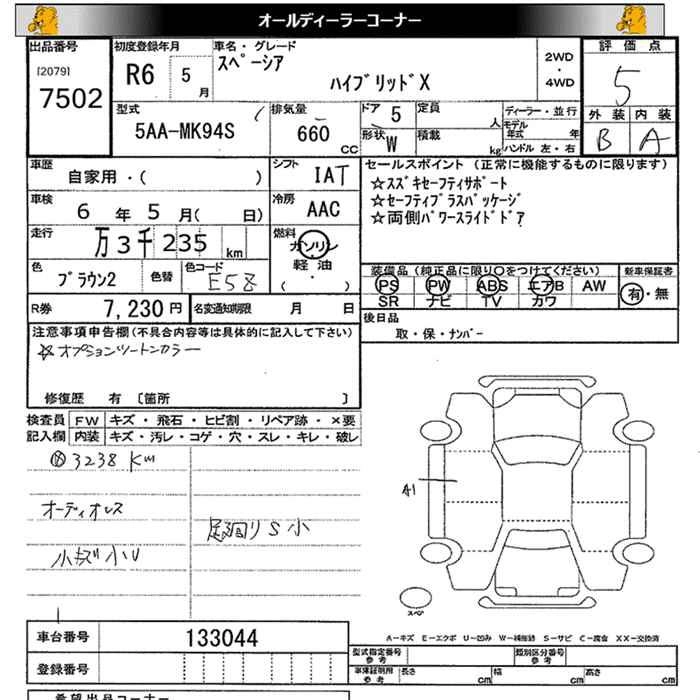 オールディーラーコーナー
出品番号 初度登録年月 車名・グレード 評価点
[2079] 7502 R6 5月 スペーシア ハイブリッドX 2WD・4WD 5
外装 内装
B A
型式 5AA-MK94S 排気量 660 CC ドア 5 形状 W 定員 人 積載 kg ディーラー・並行 モデル年式 年 ハンドル 左・右
車歴 自家用・( ) シフト IAT
車検 6年5月( 日) 冷房 AAC
走行 万3千235km 燃料 ガソリン 軽油 ( ・ )
色 ブラウン2 色替 色コード E58
R券 7,230円 名変通知期限 月 日
セールスポイント (正常に機能するものに限ります)
☆スズキセーフティサポート
☆セーフティプラスパッケージ
☆両側パワースライドドア
装備品 (純正品に限り○をつけてください) 新車保証書
PS PW ABS エアB AW 有・無
SR ナビ TV カワ
後日品
取・保・ナンバー
注意事項申告欄 (不具合内容等は具体的に記入して下さい)
☆オプションツートンカラー
修復歴 有 [箇所 ]
検査員 FW キズ・飛石・ヒビ割・リペア跡・×要
記入欄 内装 キズ・汚レ・コゲ・穴・スレ・キレ・破レ
3238 Km
オーディオレス
足廻りS小
小キズ小U
A1
スペア
A-キズ E-エクボ U-凹み W-補修跡 S-サビ C-腐食 XX-交換済
車台番号 133044
登録番号
型式指定番号 参考 類別区分番号 参考
車庫証明用 参考 長さ cm 幅 cm 高さ cm
希望出品コーナー